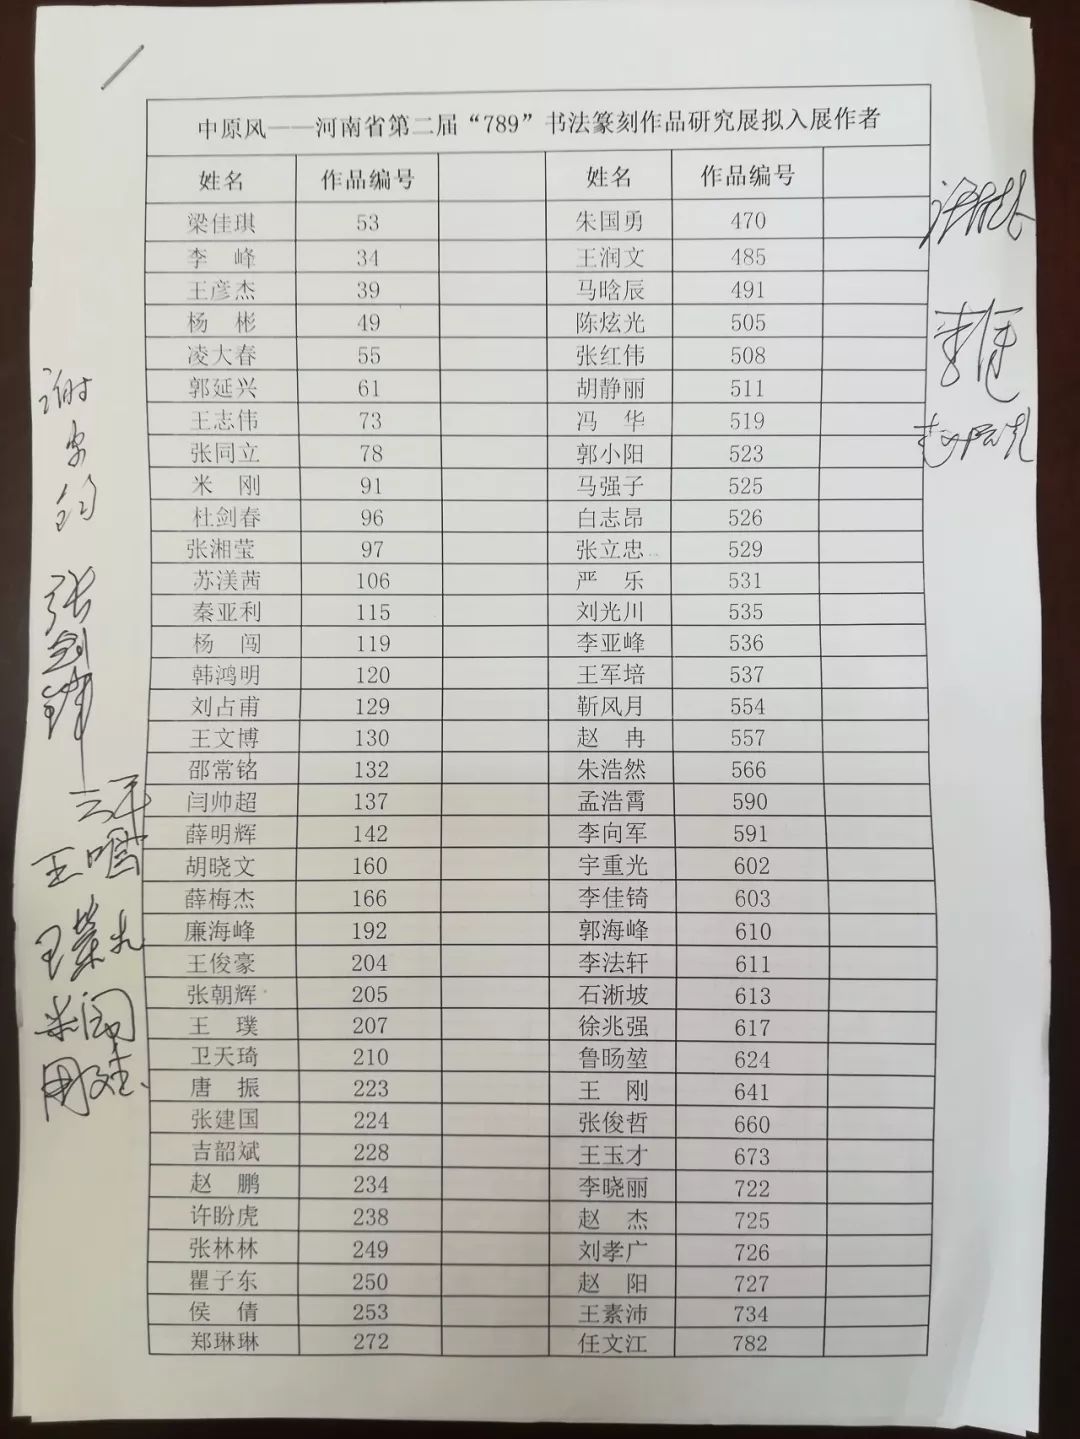 中原风——河南省第二届“789”书法篆刻作品研究展拟入展作者
姓名 作品编号 姓名 作品编号
梁佳琪 53 朱国勇 470
李 峰 34 王润文 485
王彦杰 39 马晗辰 491
杨 彬 49 陈炫光 505
凌大春 55 张红伟 508
郭延兴 61 胡静丽 511
王志伟 73 冯 华 519
张同立 78 郭小阳 523
米 刚 91 马强子 525
杜剑春 96 白志昂 526
张湘莹 97 张立忠 529
苏渼茜 106 严 乐 531
秦亚利 115 刘光川 535
杨 闯 119 李亚峰 536
韩鸿明 120 王军培 537
刘占甫 129 靳风月 554
王文博 130 赵 冉 557
邵常铭 132 朱浩然 566
闫帅超 137 孟浩霄 590
薛明辉 142 李向军 591
胡晓文 160 宇重光 602
薛梅杰 166 李佳锜 603
廉海峰 192 郭海峰 610
王俊豪 204 李法轩 611
张朝辉 205 石淅坡 613
王 璞 207 徐兆强 617
卫天琦 210 鲁旸堃 624
唐 振 223 王 刚 641
张建国 224 张俊哲 660
吉韶斌 228 王玉才 673
赵 鹏 234 李晓丽 722
许盼虎 238 赵 杰 725
张林林 249 刘孝广 726
瞿子东 250 赵 阳 727
侯 倩 253 王素沛 734
郑琳琳 272 任文江 782
谢安钧
张剑锋
云平
米闹